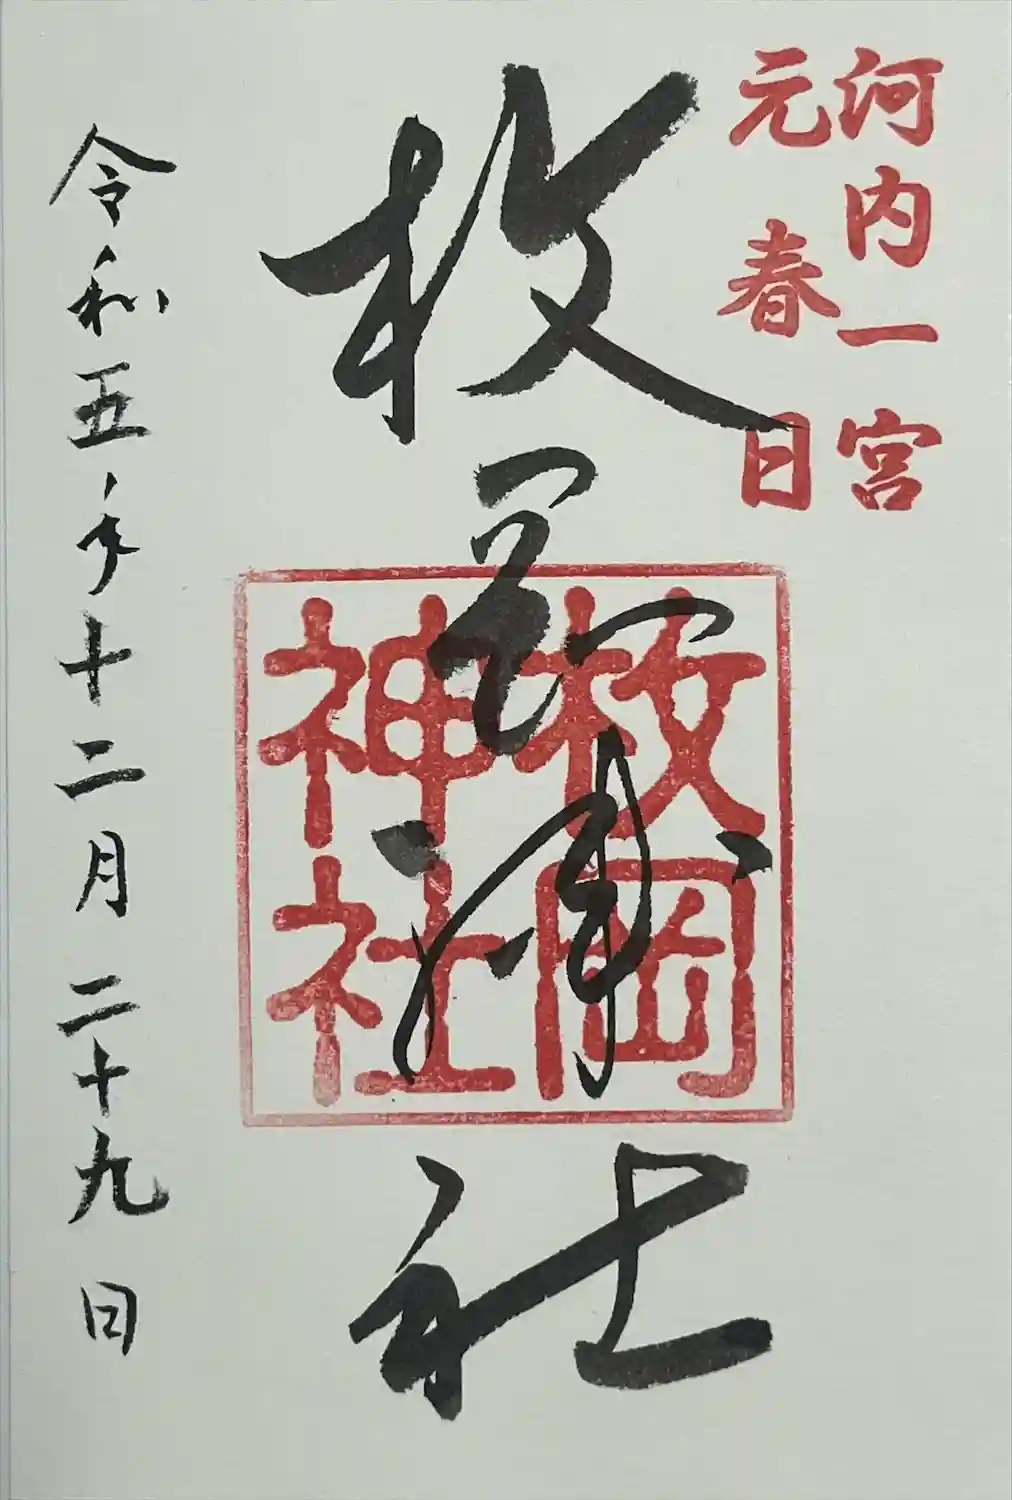 河内一宮
元春日
枚岡神社
枚岡神社
令和五年十二月二十九日